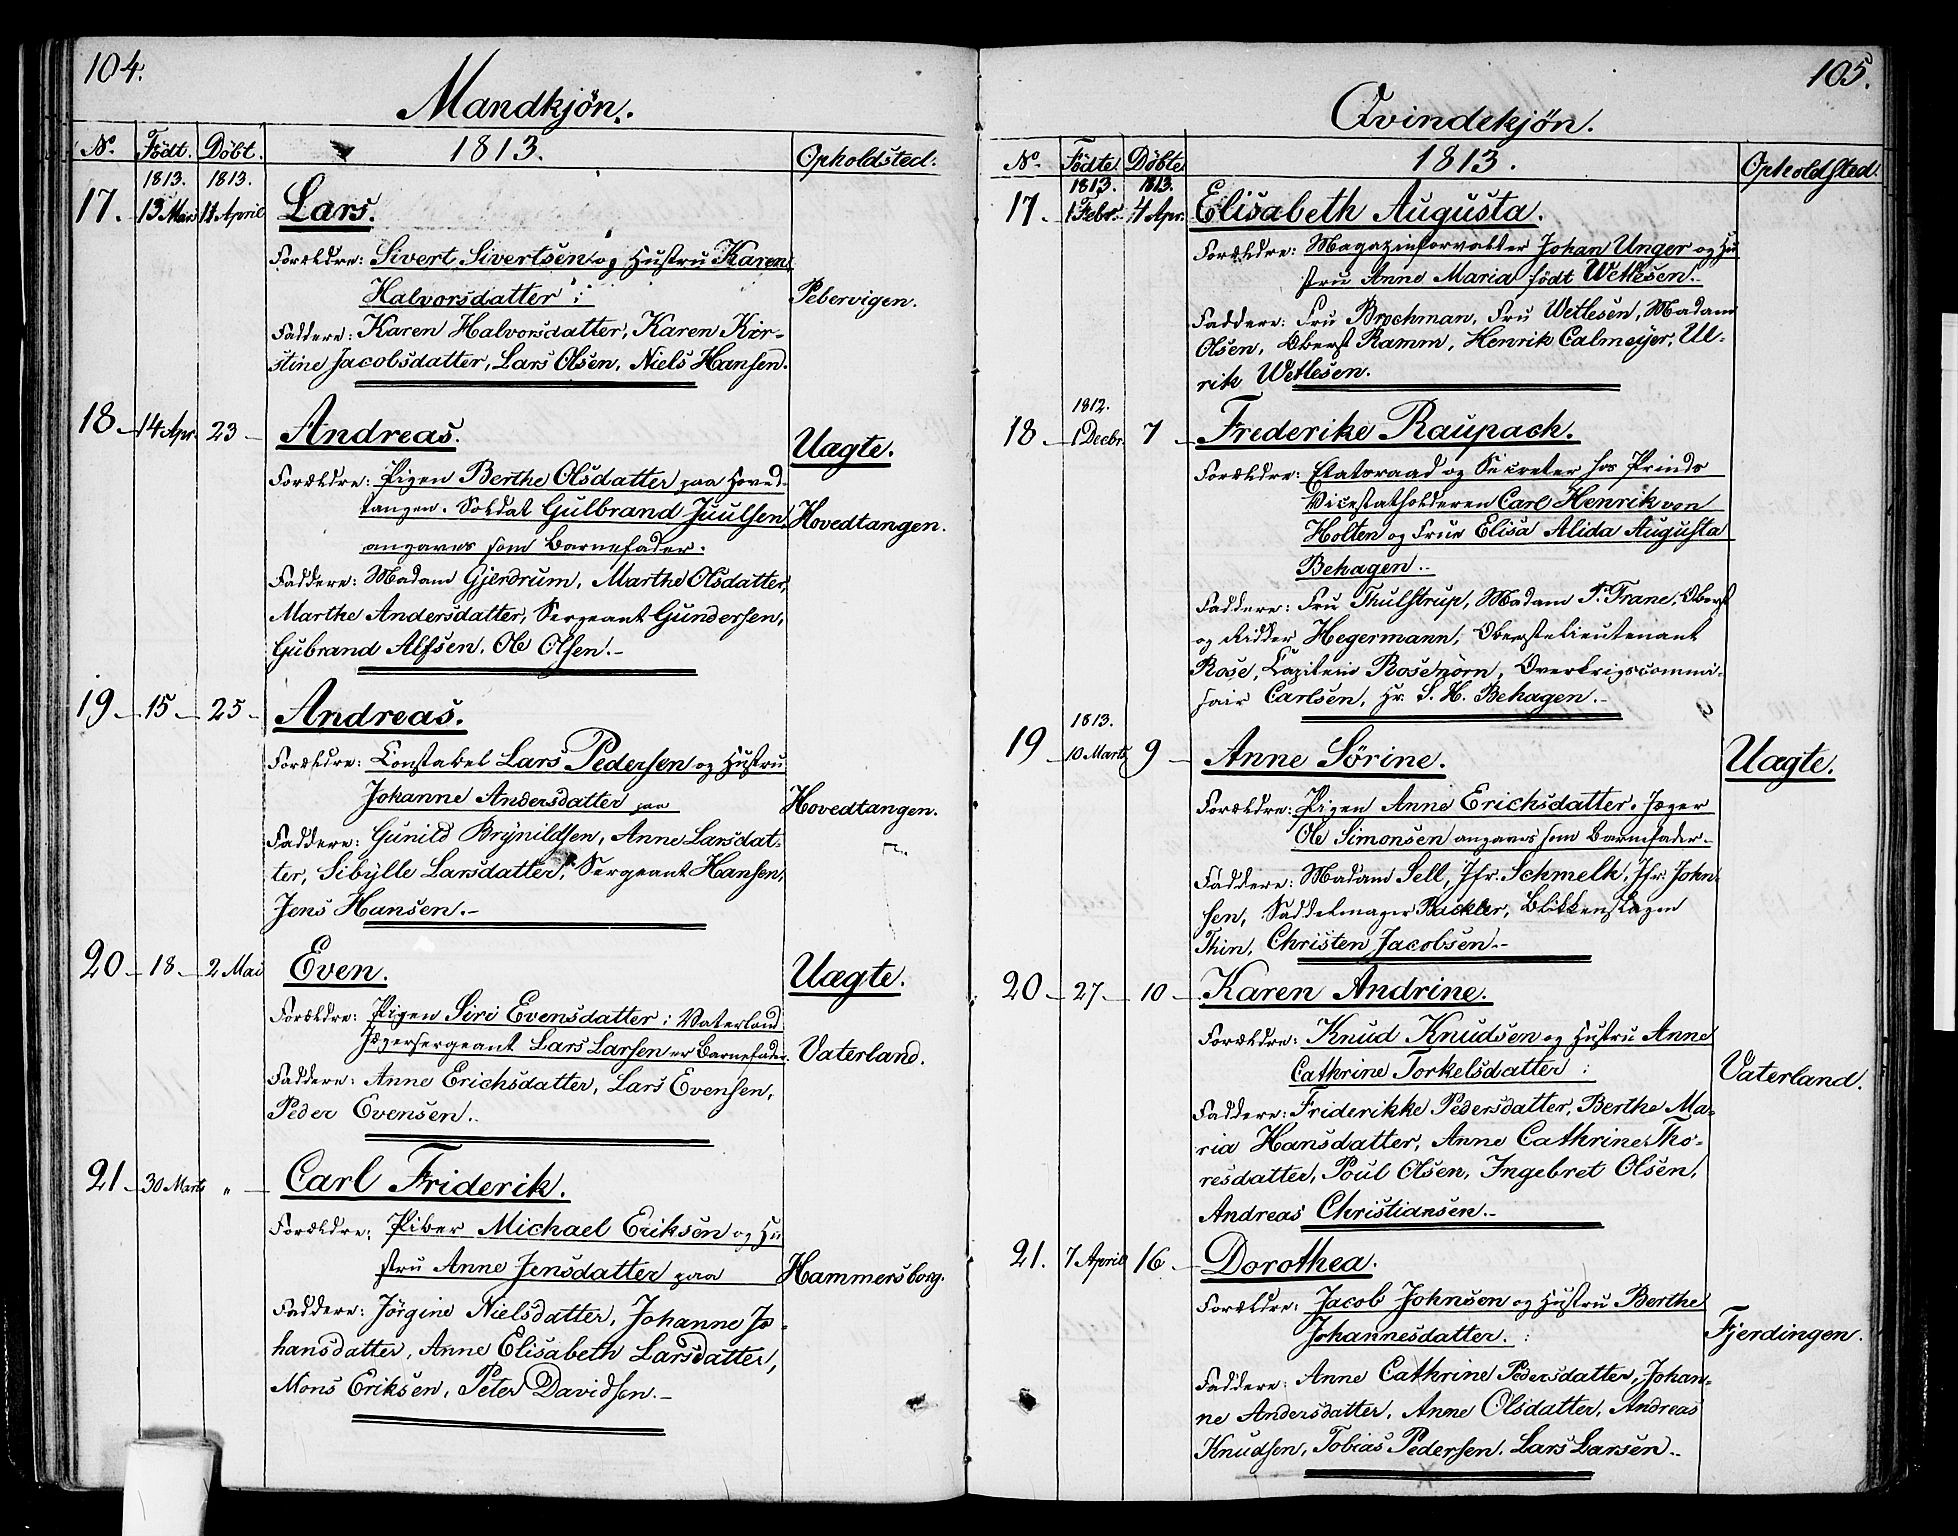 104.
Mandkjön.
No. Födt. Döbt. 1813. Opholdsted.
1813. 1813.
17. 13 Mars 11 April Lars.
Forældre: Sivert Sivertsen og Hustru Karen
Halvorsdatter i Pebervigen.
Faddere: Karen Halvorsdatter, Karen Kir-
stine Jacobsdatter, Lars Olsen, Niels Hansen.
18 14 Apr. 23 Andreas. Uægte.
Forældre: Pigen Berthe Olsdatter paa Hoved-
tangen. Soldat Gulbrand Juulsen Hovedtangen.
angaves som Barnefader.
Faddere: Madam Gjerdrum, Marthe Olsdatter,
Marthe Andersdatter, Sergeant Gundersen,
Gubrand Alfsen, Ole Olsen.
19 15 25 Andreas.
Forældre: Constabel Lars Pedersen og Hustru
Johanne Andersdatter paa Hovedtangen.
Faddere: Gunild Brÿnildsen, Anne Larsdat-
ter, Sibÿlle Larsdatter, Sergeant Hansen,
Jens Hansen.
20 18 2 Mai Even. Uægte.
Forældre: Pigen Siri Evensdatter i Vaterland
Jægersergeant Lars Larsen er Barnefader. Vaterland.
Faddere: Anne Erichsdatter, Lars Evensen,
Peder Evensen.
21 30 Marts " Carl Friderik.
Forældre: Piber Michael Eriksen og Hu
stru Anne Jensdatter paa Hammersborg.
Faddere: Jörgine Nielsdatter, Johanne Jo-
hansdatter, Anne Elisabeth Larsdatter,
Mons Eriksen, Peter Davidsen.
105.
Qvindekjön.
No. Födte. Döbte. 1813. Opholdsted.
1813. 1813.
17. 1 Febr. 4 Apr. Elisabeth Augusta.
Forældre: Magazinforvalter Johan Unger og Hu
stru Anne Maria födt Wetlesen.
Faddere: Fru Brochman, Fru Wetlesen, Madam
Olsen, Oberst Ramm, Henrik Calmeÿer, Ul-
rik Wetlesen.
1812.
18 1 Decbr. 7 Frederike Raupach.
Forældre: Etatsraad og Secreter hos Prinds
Vicestatholderen Carl Henrik von
Holten og Frue Elisa Alida Augusta
Behagen.
Faddere: Fru Thulstrup, Madam P. Trane, Oberst
og Ridder Hegermann, Oberstelieutenant
Rose, Capitein Rosenörn, Overkrigscommi-
sair Carlsen, Hr. S. H. Behagen.
1813.
19 10 Marts 9 Anne Sörine. Uægte.
Forældre: Pigen Anne Erichsdatter. Jæger
Ole Simonsen angaves som Barnefader.
Faddere: Madam Sell, Jfr. Schmelk, Jfr. John-
sen, Saddelmager Bickler, Blikkenslager
Thin, Christen Jacobsen.
20 27 10 Karen Andrine.
Forældre: Knud Knudsen og Hustru Anne
Cathrine Torkelsdatter i Vaterland.
Faddere: Friderikke Pedersdatter, Berthe Ma-
ria Hansdatter, Anne Cathrine Tho-
resdatter, Poul Olsen, Ingebret Olsen,
Andreas Christiansen.
21. 7 April 16 Dorothea.
Forældre: Jacob Johnsen og Hustru Berthe
Johannesdatter. Fjerdingen.
Faddere: Anne Cathrine Pedersdatter, Johan-
ne Andersdatter, Anne Olsdatter, Andreas
Knudsen, Tobias Pedersen, Lars Larsen.